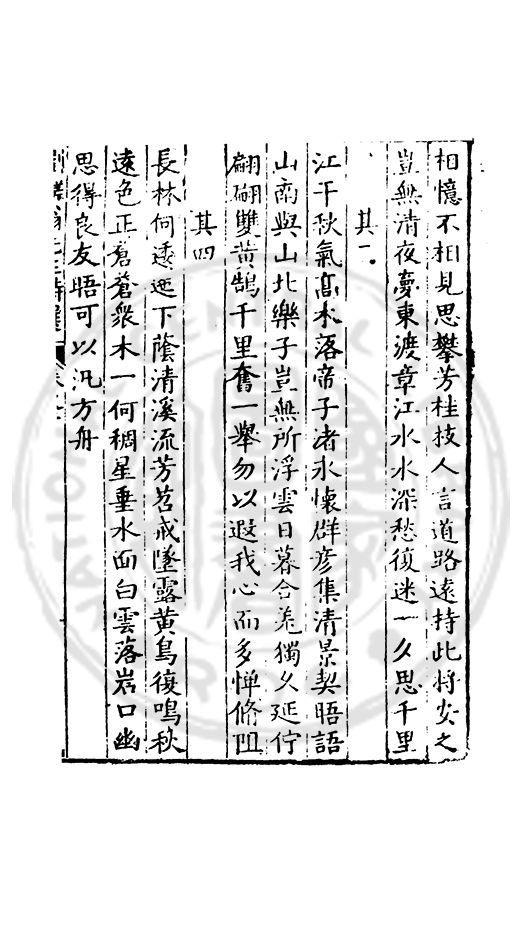 相憶不相見思攀芳桂枝人言道路遠持此將安之
豈無清夜夢東渡章江水水深愁復迷一夕思千里
其二
江干秋氣高木落帝子渚永懷群彥集清景契晤語
山南與山北樂子豈無所浮雲日暮合羗獨久延佇
翩翩雙黃鵠千里奮一舉勿以遐我心而多憚脩阻
其四
長林何逶迤下蔭清溪流芳苕戒墜露黃鳥復鳴秋
遠色正蒼蒼衆木一何稠星垂水面白雲落岩口幽
思得良友晤可以汎方舟